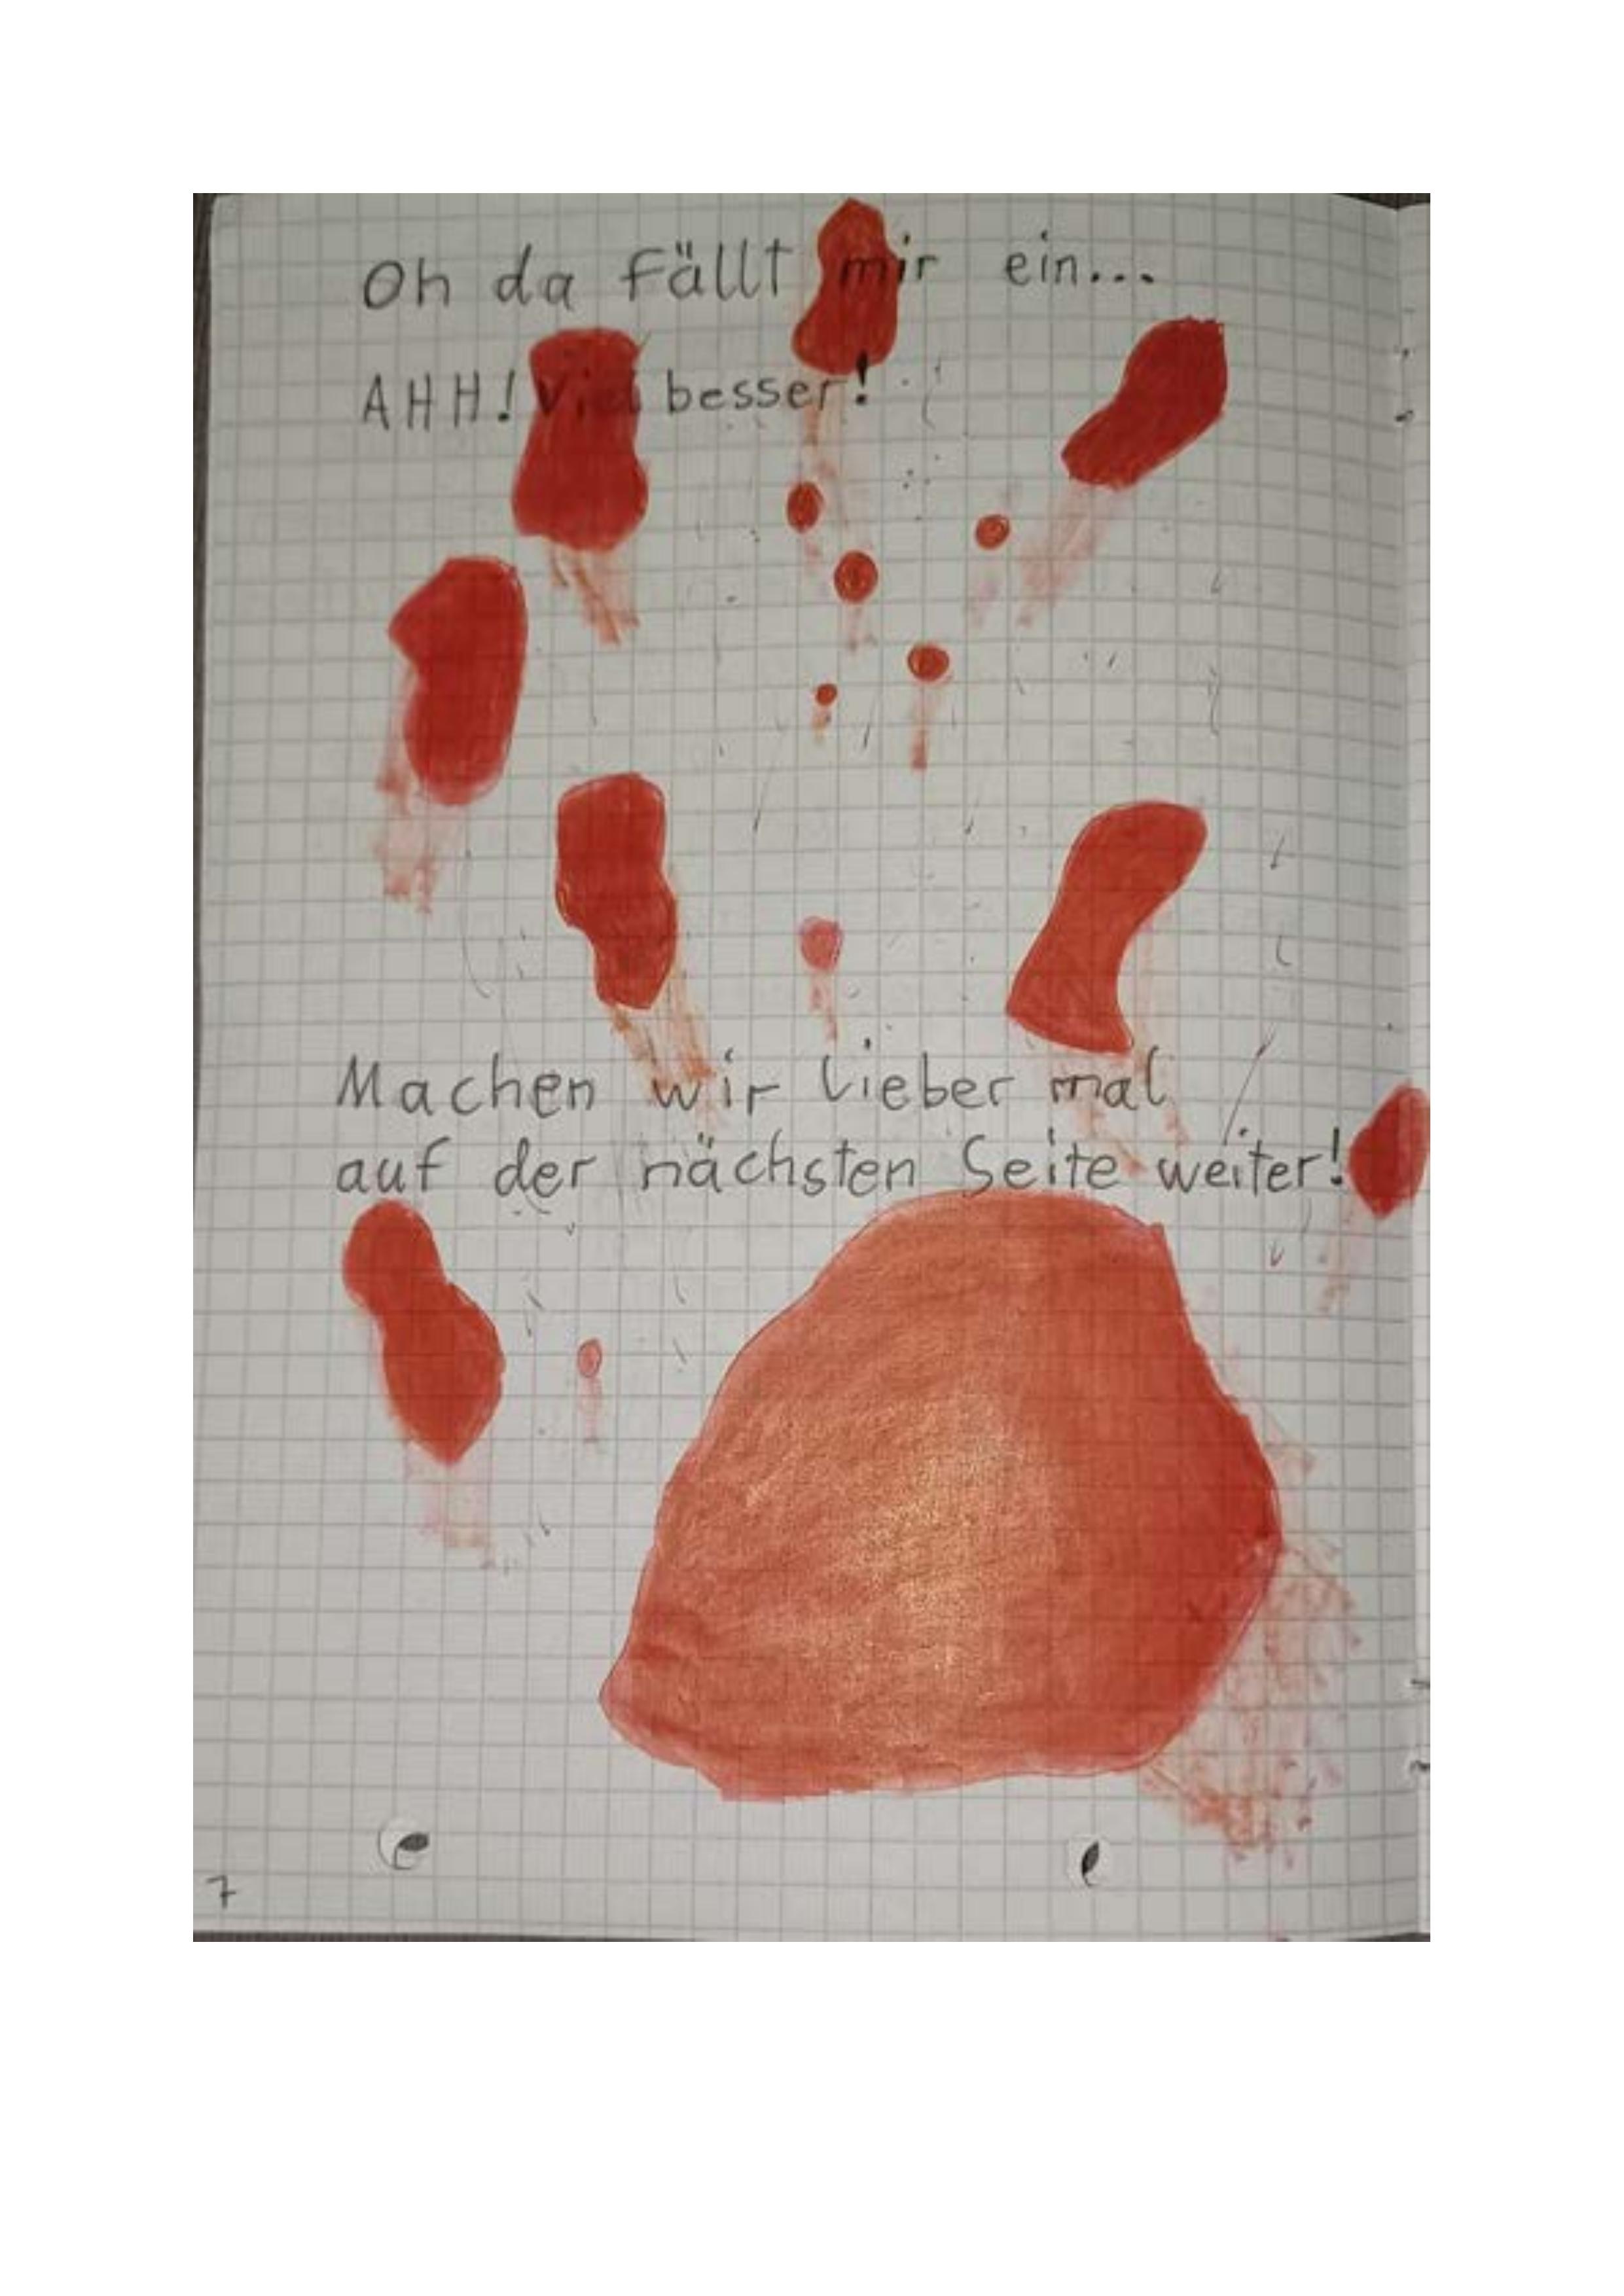 Oh da fällt mir ein...
AHH! Viel besser!
Machen wir lieber mal
auf der nächsten Seite weiter!
7